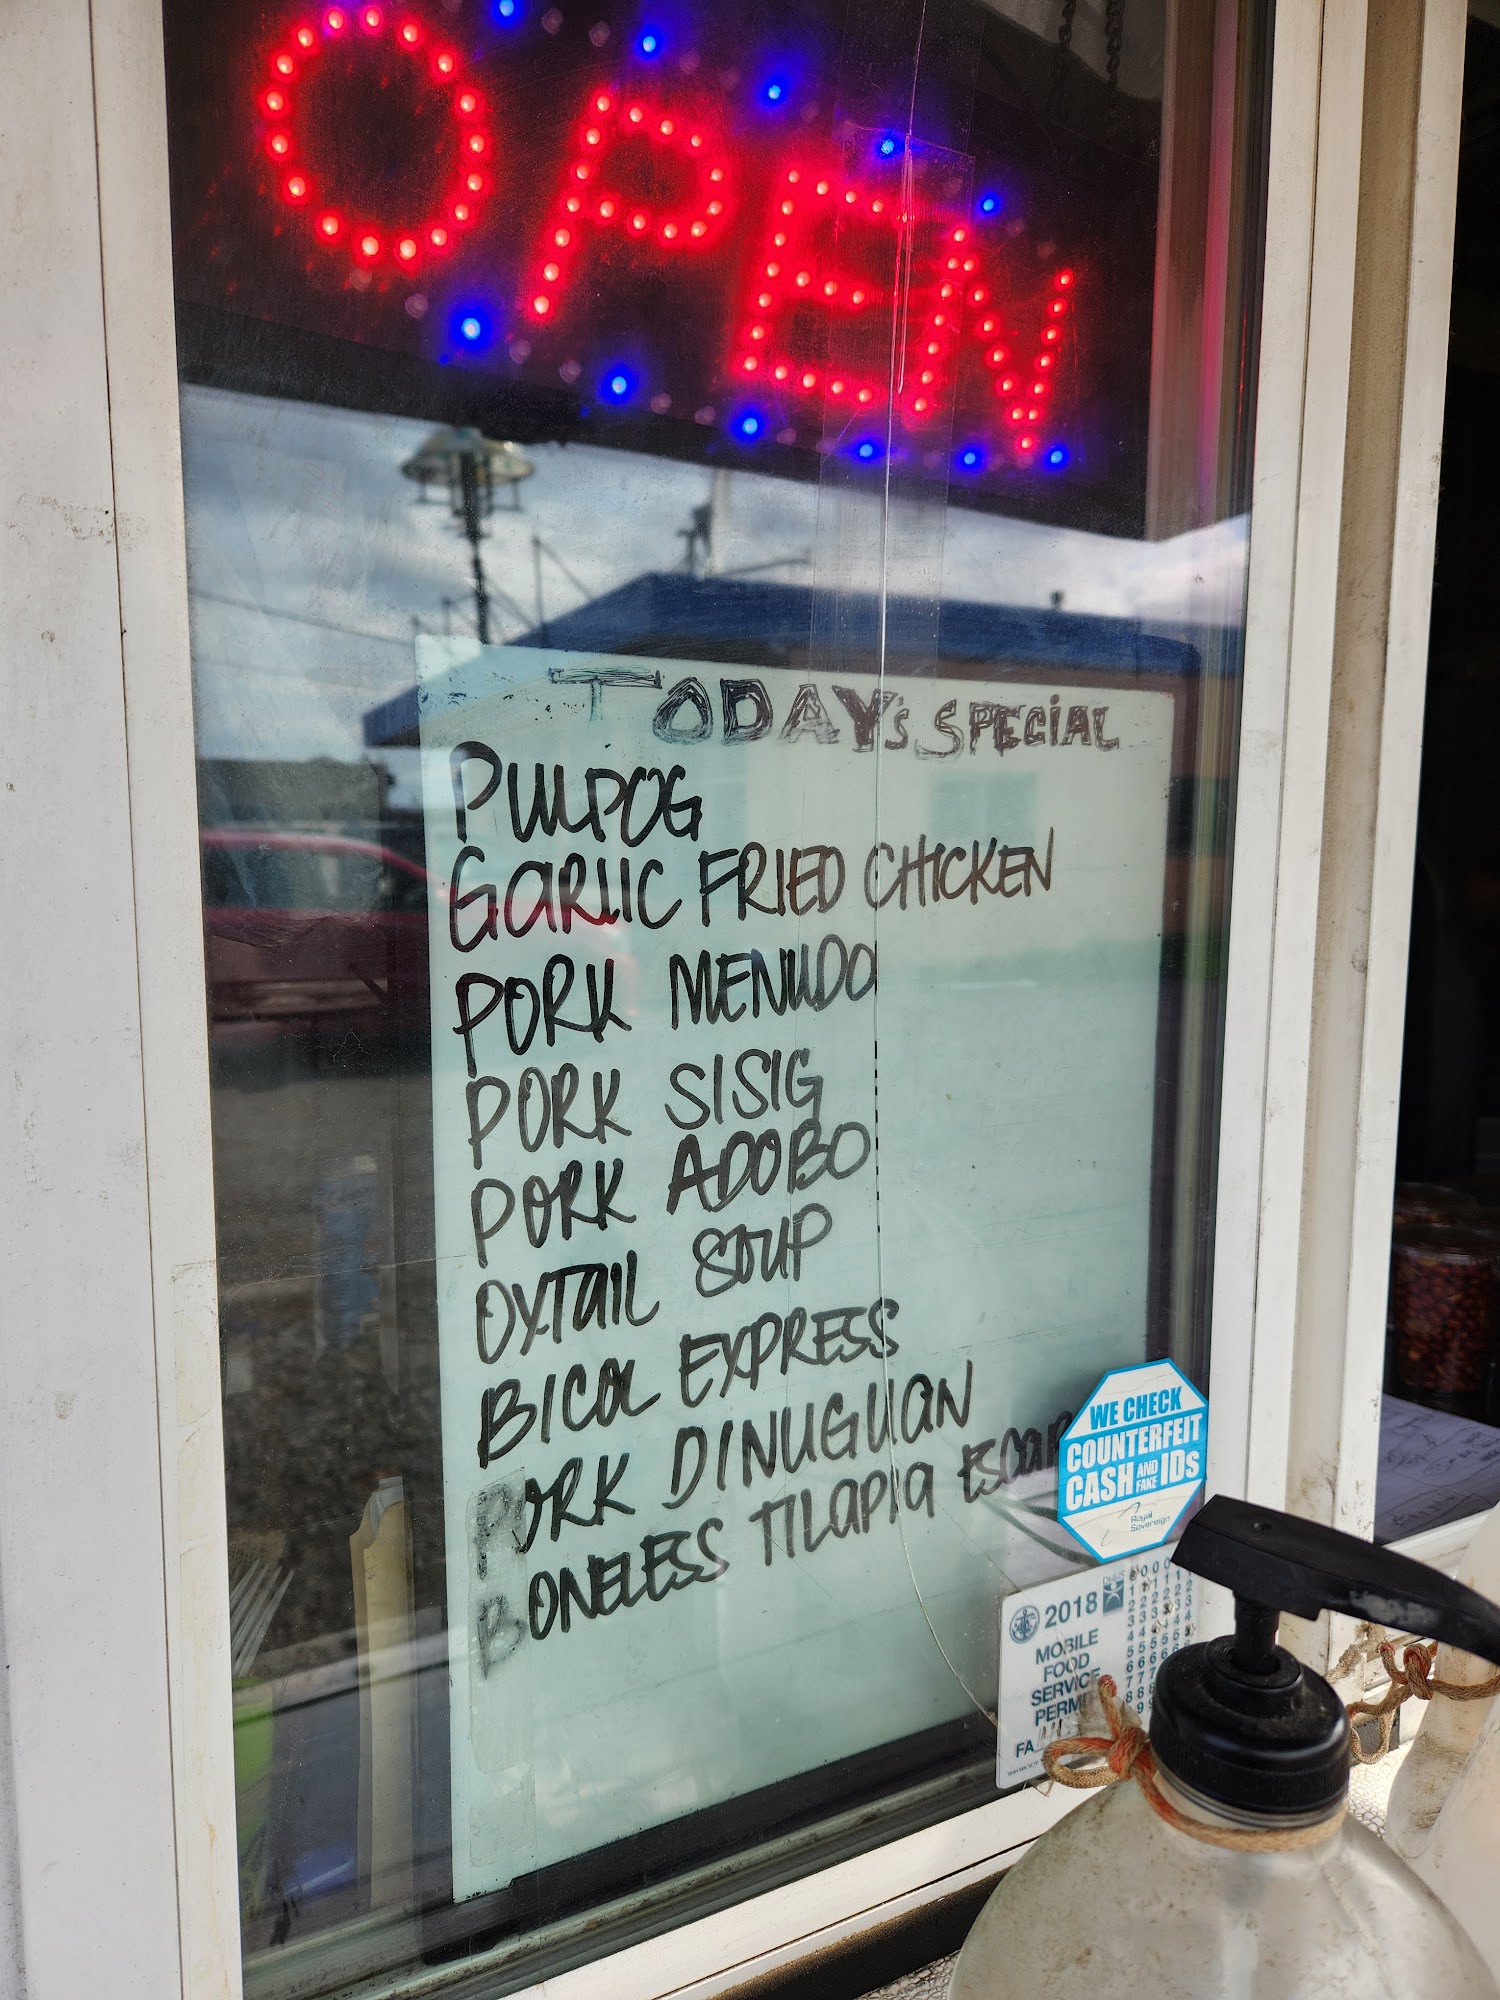 OPEN
TODAY's SPECiAL
PULPOG
GARLIC FRIED CHICKEN
PORK MENUDO
PORK SISIG
PORK ADOBO
OXTAIL SOUP
BICOL EXPRESS
PORK DINUGUAN
BONELESS TILAPIA
WE CHECK
COUNTERFEIT
CASH AND FAKE IDs
Royal
Sovereign
2018
MOBILE
FOOD
SERVICE